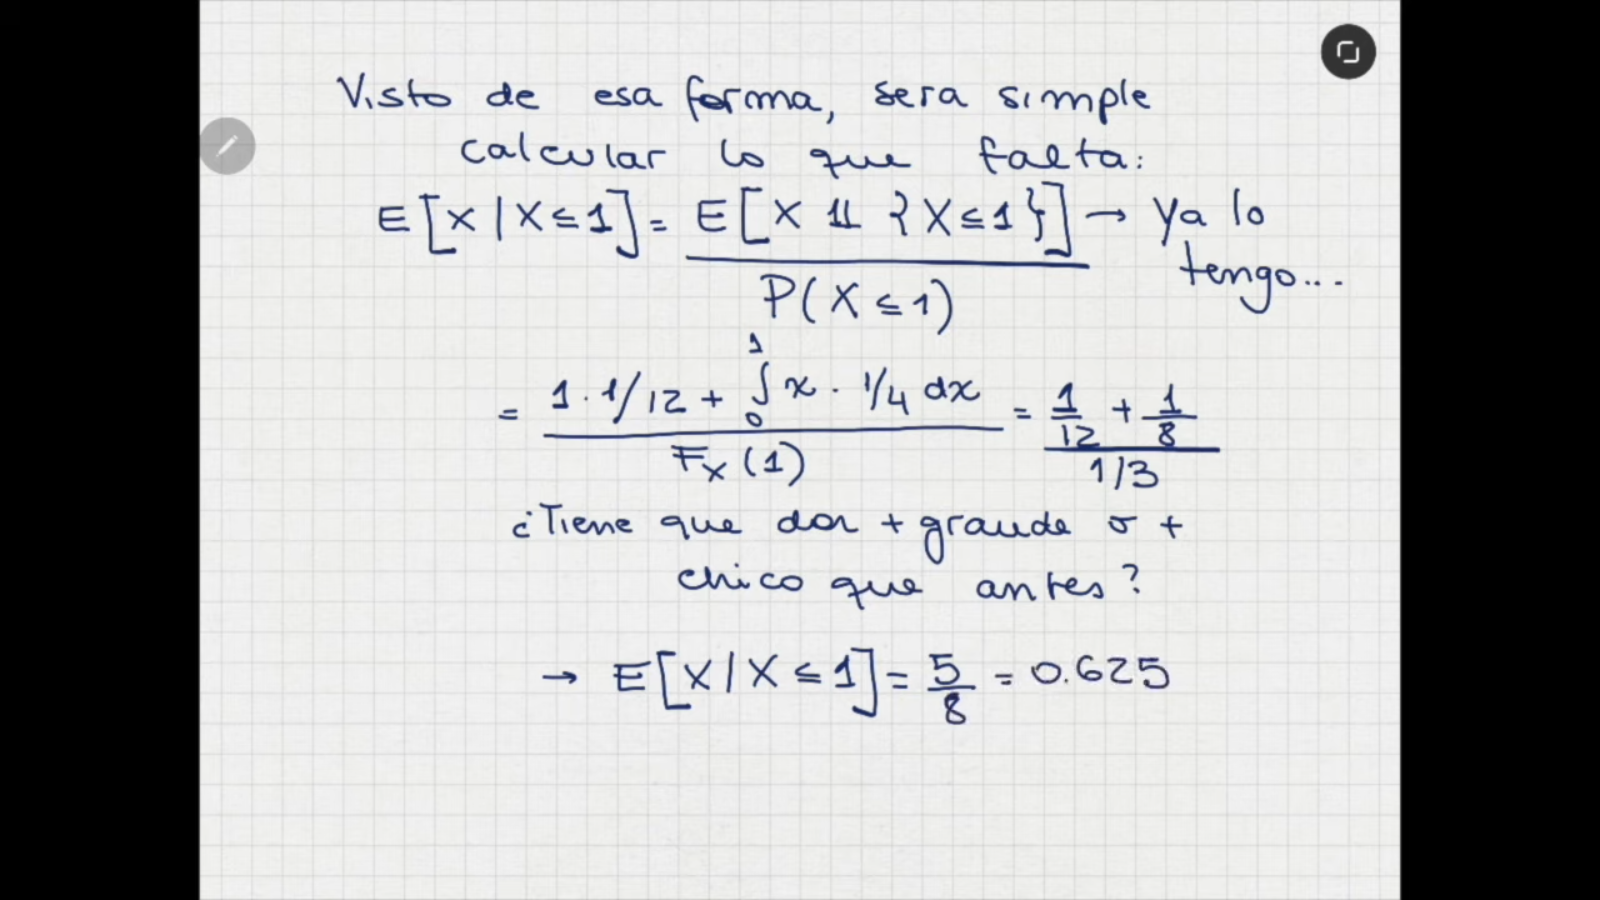 Visto de esa forma, sera simple
calcular lo que falta:
E[X|X≤1] = E[X 𝟙{X≤1}] / P(X≤1) → Ya lo tengo...
= (1·1/12 + ∫₀¹ x·1/4 dx) / F_X(1) = (1/12 + 1/8) / (1/3)
¿Tiene que dar + grande o +
chico que antes?
→ E[X|X≤1] = 5/8 = 0.625